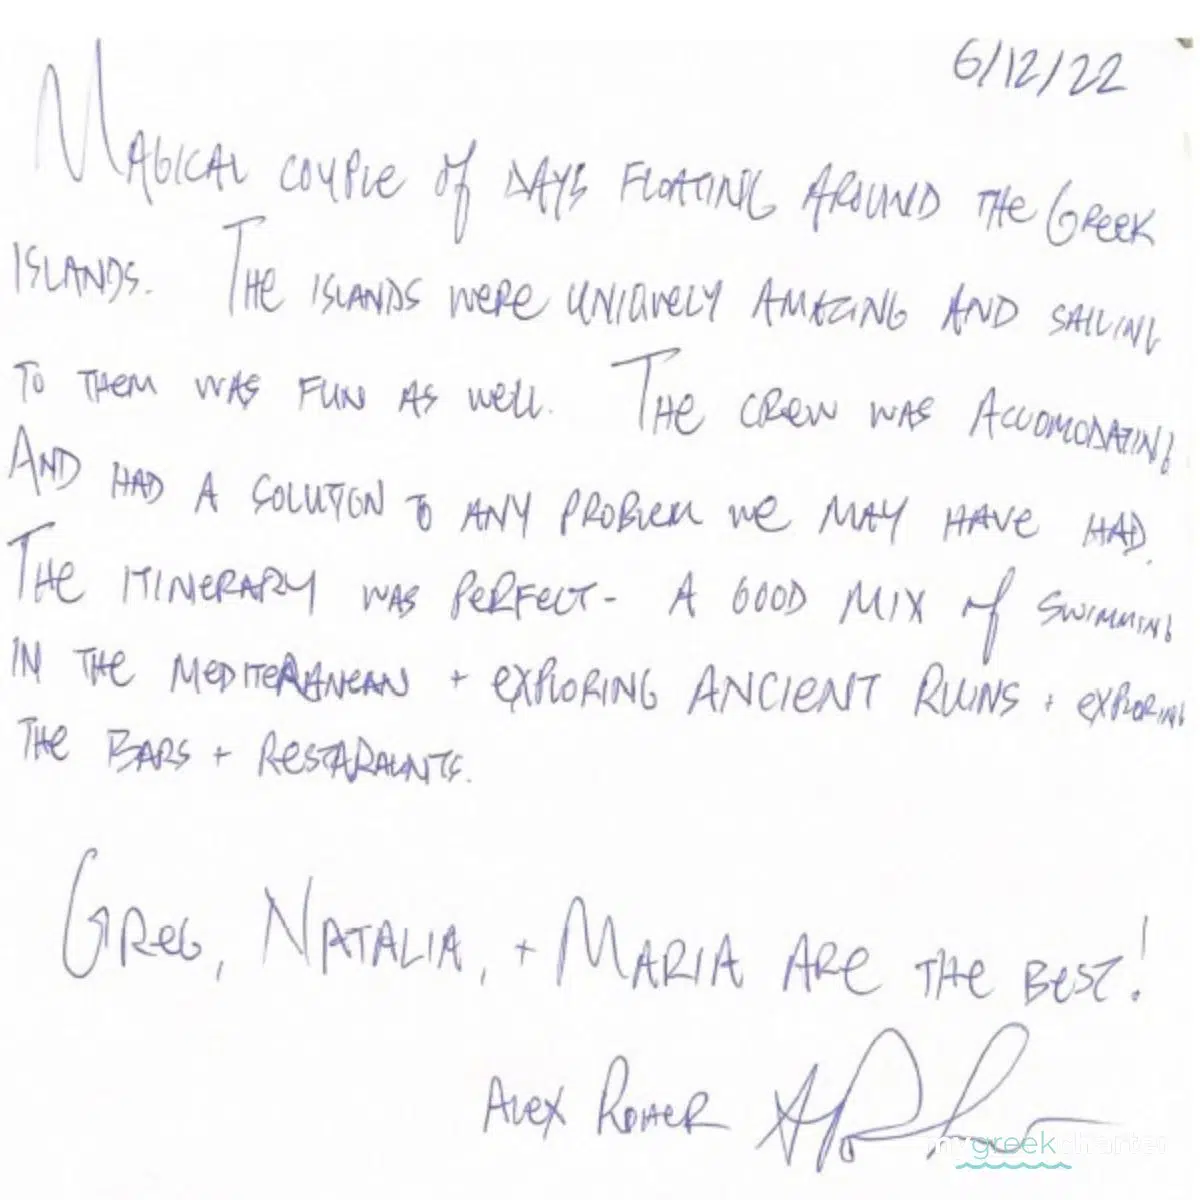 6/12/22
MAGICAL COUPLE OF DAYS FLOATING AROUND THE GREEK
ISLANDS. THE ISLANDS WERE UNIQUELY AMAZING AND SAILING
TO THEM WAS FUN AS WELL. THE CREW WAS ACCOMODATING
AND HAD A SOLUTION TO ANY PROBLEM WE MAY HAVE HAD.
THE ITINERARY WAS PERFECT - A GOOD MIX OF SWIMMING
IN THE MEDITERANEAN + EXPLORING ANCIENT RUINS + EXPLORING
THE BARS + RESTARAUNTS.
GREG, NATALIA, + MARIA ARE THE BEST!
ALEX
mygreekcharter